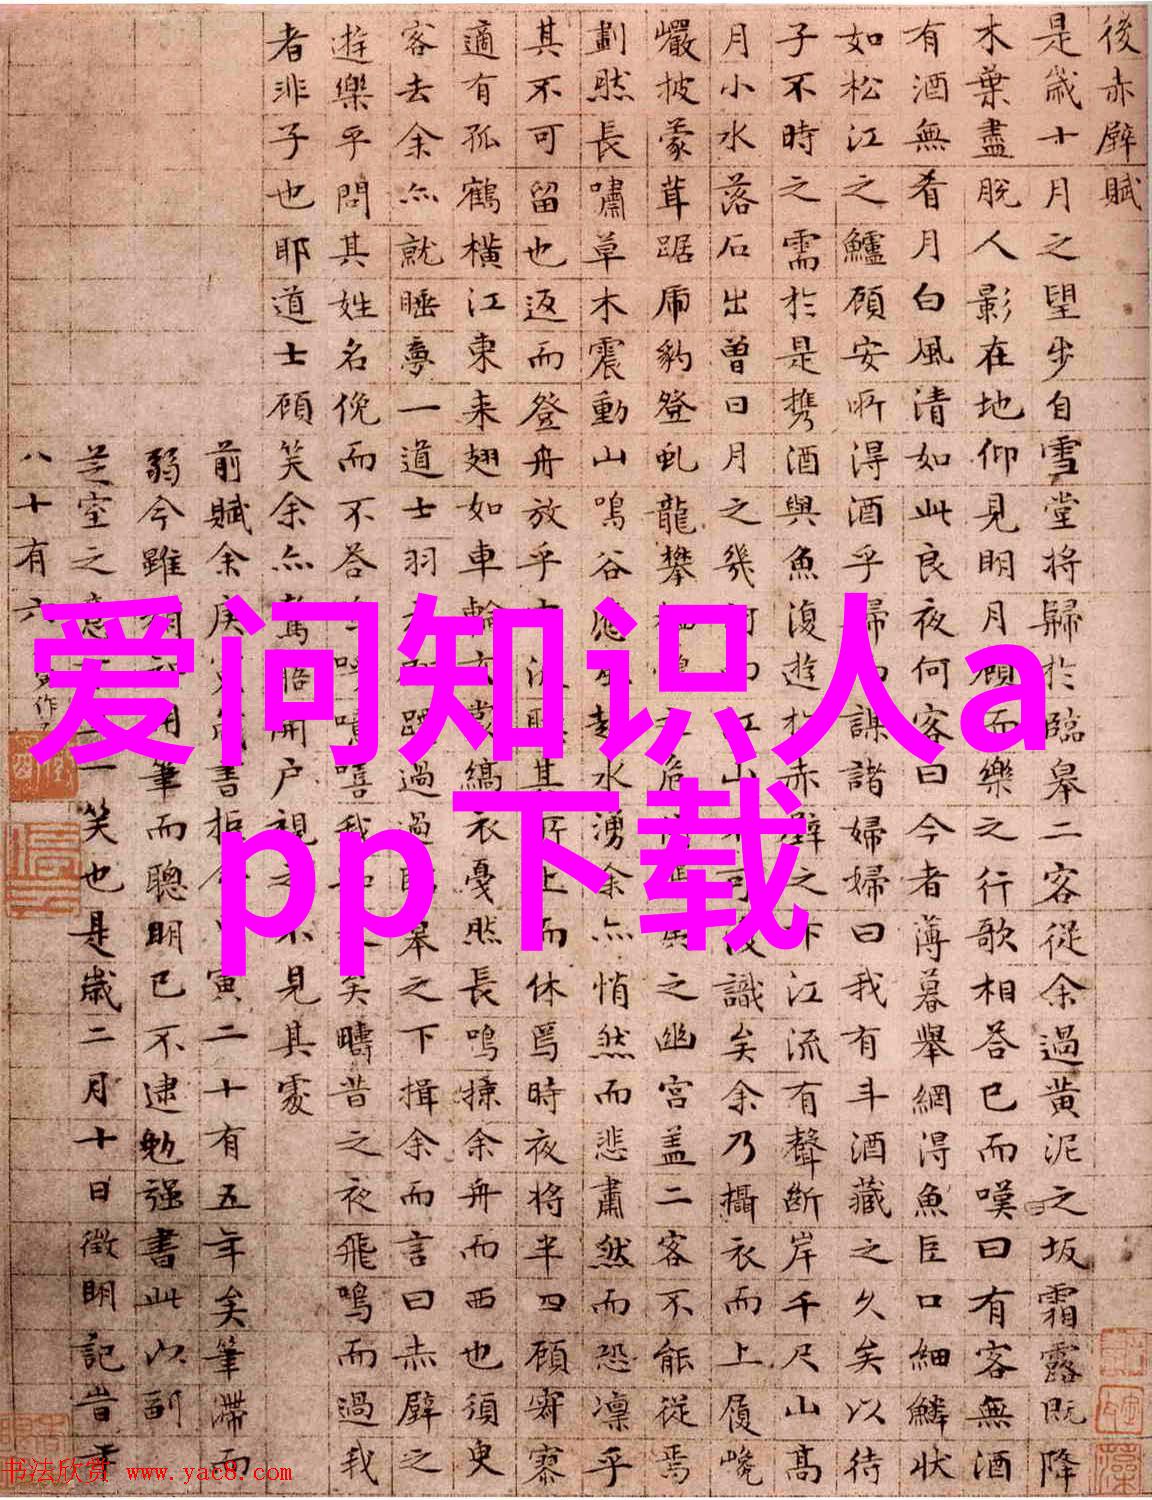 後赤壁賦
是歲十月之望步自雪堂將歸於臨皋二客從余過黃泥之坂霜露既降
木葉盡脫人影在地仰見明月顧而樂之行歌相答已而嘆曰有客無酒
有酒無肴月白風清如此良夜何客曰今者薄暮舉網得魚巨口細鱗狀
如松江之鱸顧安所得酒乎歸而謀諸婦婦曰我有斗酒藏之久矣以待
子不時之需於是攜酒與魚復遊於赤壁之下江流有聲斷岸千尺山高
月小水落石出曾日月之幾何而江山不可復識矣余乃攝衣而上履巉
巖披蒙茸踞虎豹登虬龍攀之危之幽宮蓋二客不能從焉
劃然長嘯草木震動山鳴谷應風起水湧余亦悄然而悲肅然而恐凜乎
其不可留也返而登舟放乎中流聽其所止而休焉時夜將半四顧寂寥
適有孤鶴橫江東來翅如車輪玄裳縞衣戛然長鳴掠余舟而西也須臾
客去余亦就睡夢一道士羽衣翩躚過臨皋之下揖余而言曰赤壁之
遊樂乎問其姓名俛而不答嗚呼噫嘻我知之矣疇昔之夜飛鳴而過我
者非子也耶道士顧笑余亦驚悟開戶視之不見其處
前賦余庚寅歲書拒今寅二十有五年矣筆滯而
弱今雖用筆而聰明已不逮勉強書此以副
芝室之意一笑也是歲二月十日徵明記昔年
八十有六
爱问知识人a
pp下载
书法欣赏 www.yac8.com